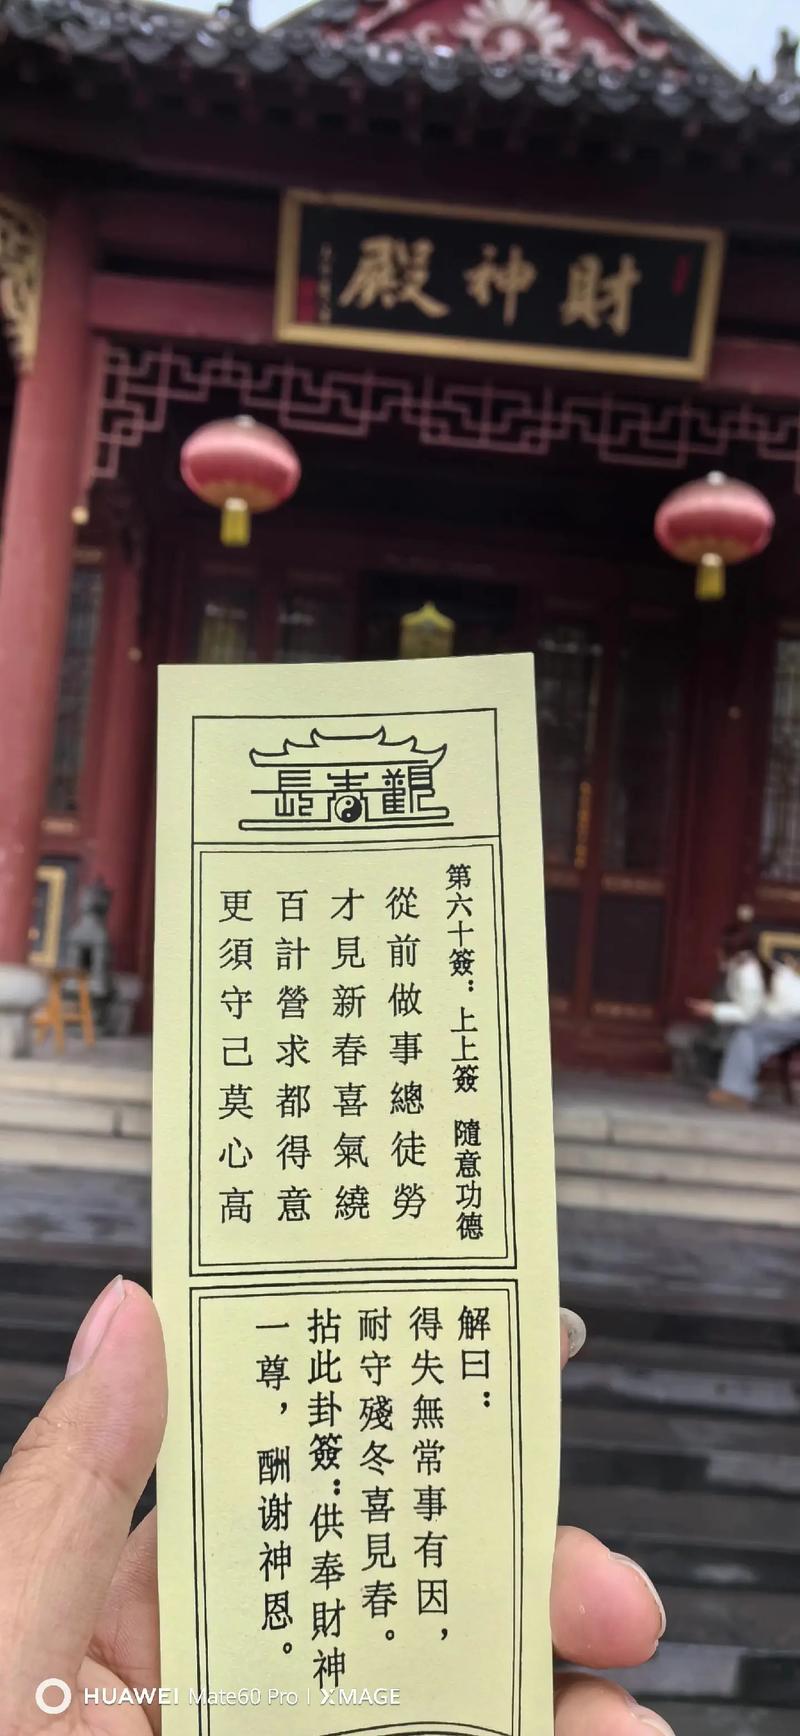 財神殿
長春觀
第六十簽：上上簽 隨意功德
從前做事總徒勞
才見新春喜氣繞
百計營求都得意
更須守己莫心高
解曰：
得失無常事有因，
耐守殘冬喜見春。
拈此卦簽：供奉財神
一尊，酬谢神恩。
HUAWEI Mate60 Pro | XMAGE